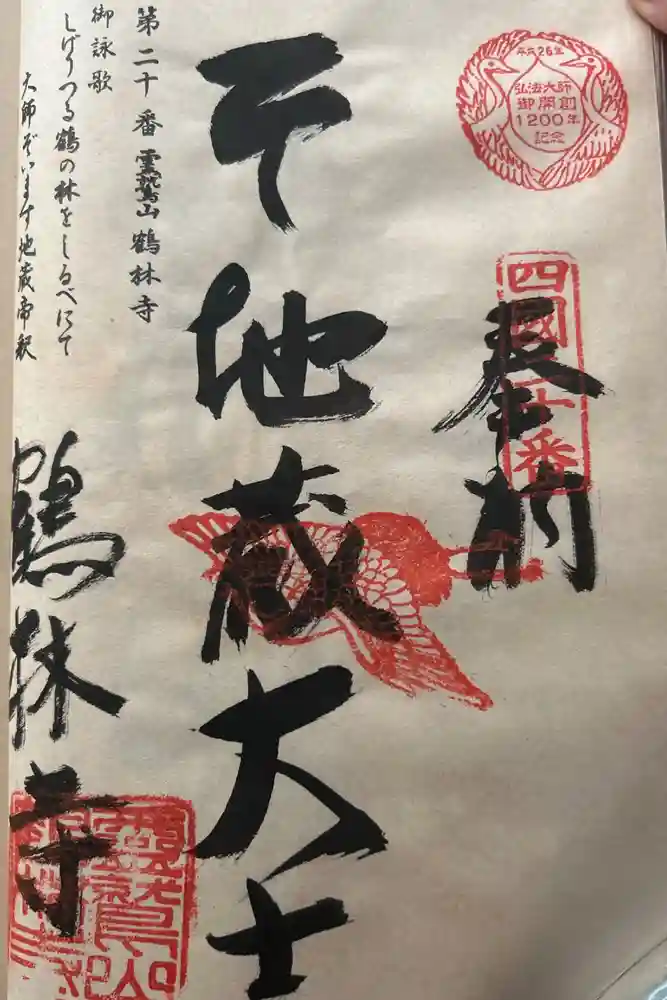 平成26年
弘法大師
御開創
1200年
記念
四國二十番
奉納
地蔵大士
第二十番 霊鷲山 鶴林寺
御詠歌
しげりつる鶴の林をしるべにて
大師ぞいます地蔵帝釈
鶴林寺